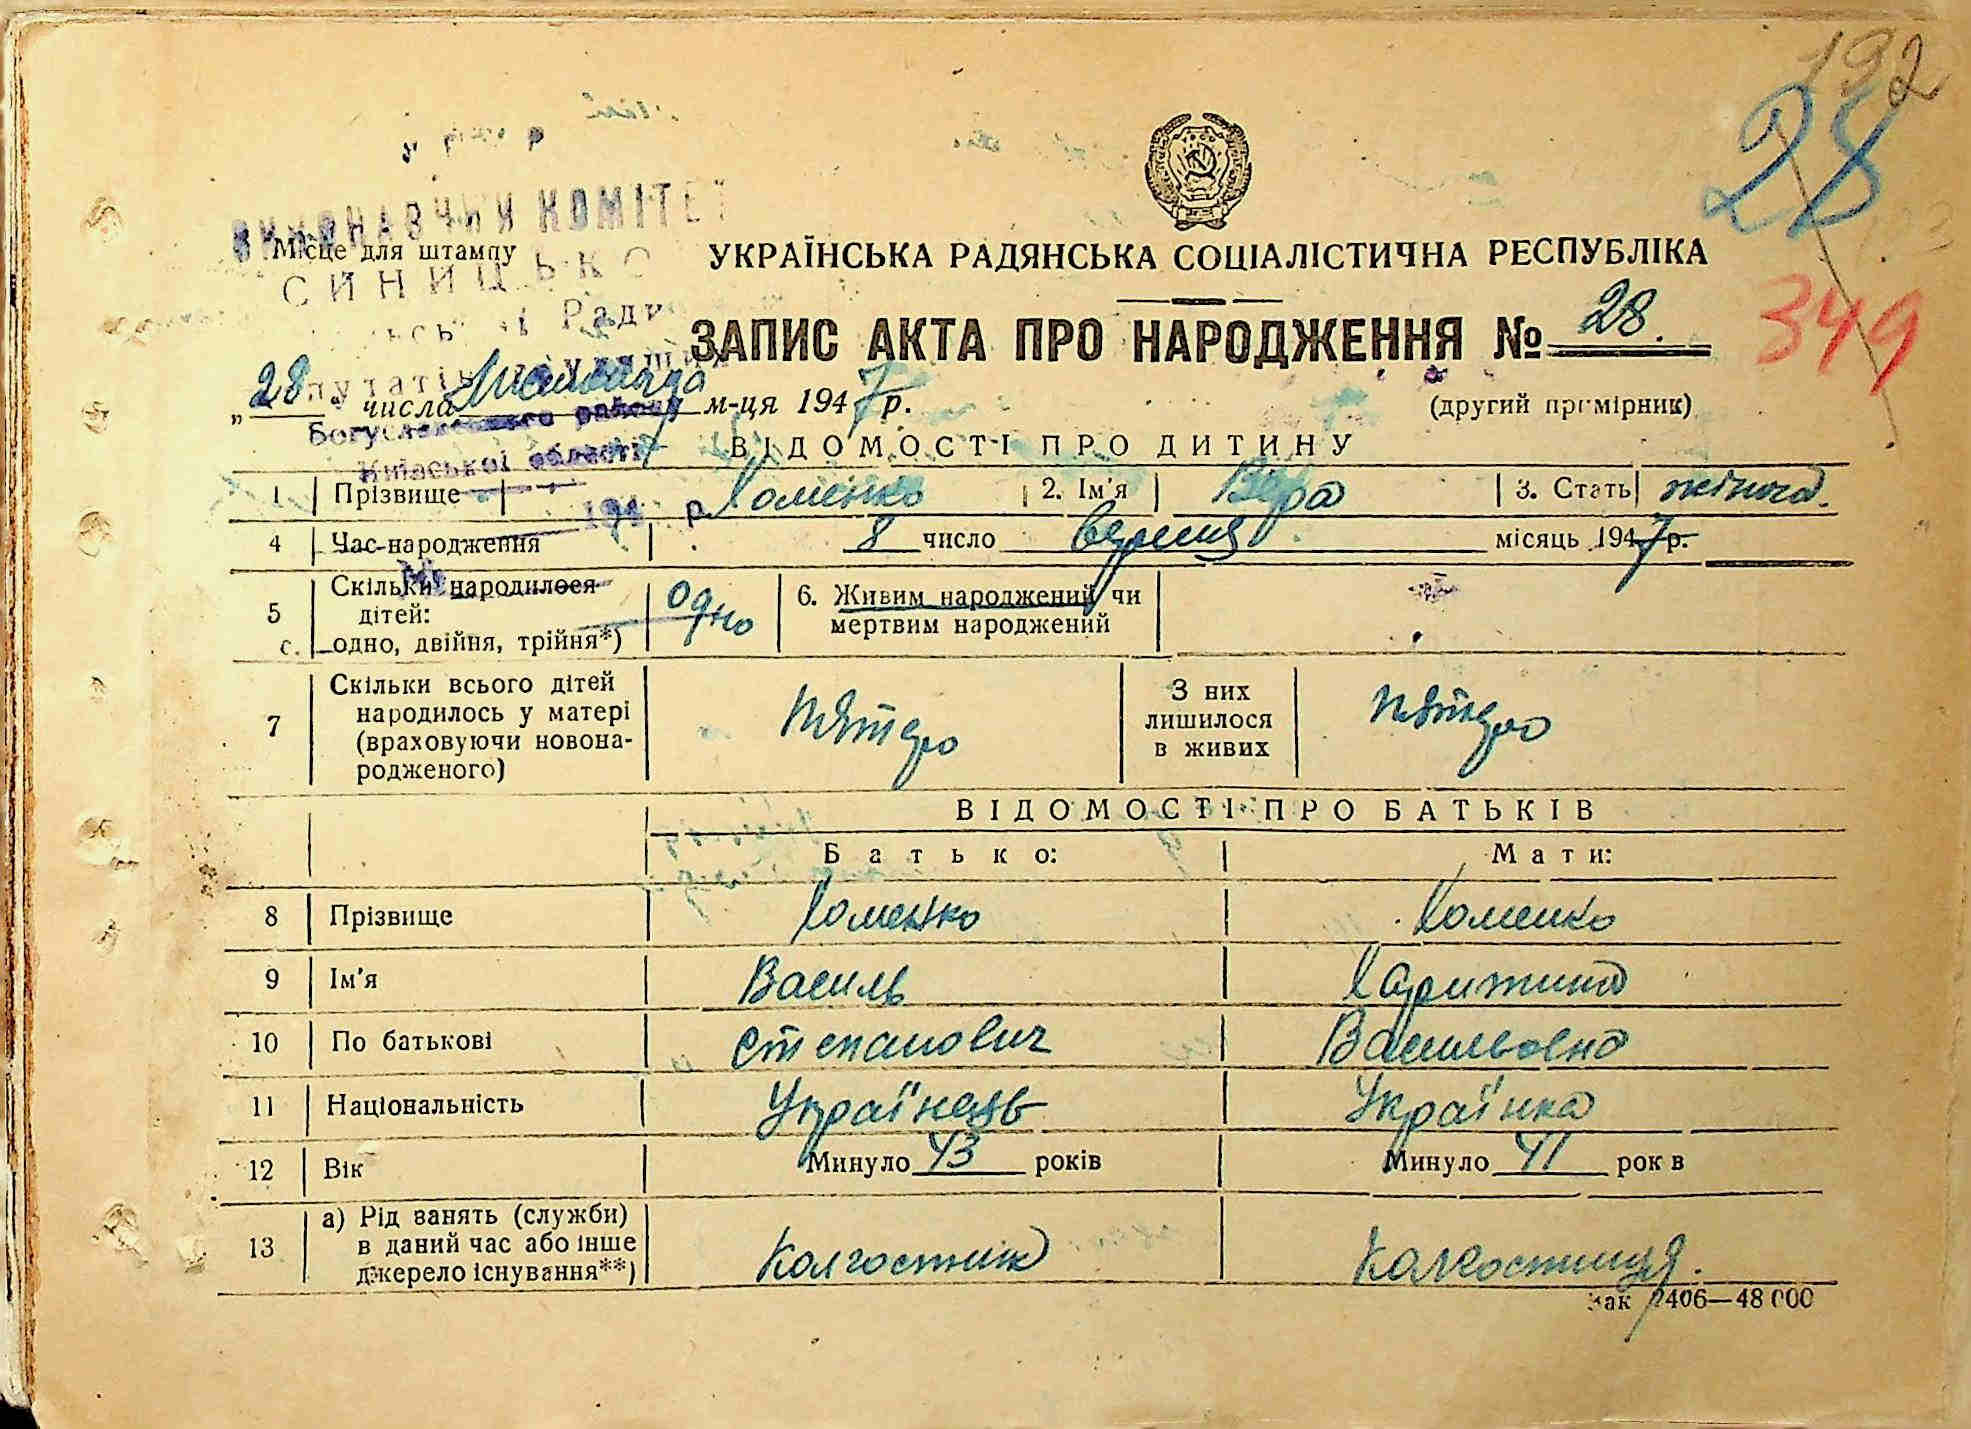 192
28
349
ВИКОНАВЧИЙ КОМІТЕТ
Місце для штампу
СИНИЦЬКО
Ради
путатів
Богуславського району
Київської області
194 р.
УКРАЇНСЬКА РАДЯНСЬКА СОЦІАЛІСТИЧНА РЕСПУБЛІКА
ЗАПИС АКТА ПРО НАРОДЖЕННЯ № 28.
„28 числа Листопада м-ця 1947 р.
(другий примірник)
ВІДОМОСТІ ПРО ДИТИНУ
1 Прізвище Хоменко 2. Ім'я Віра 3. Стать жіноча.
4 Час народження 8 число вересня місяць 1947 р.
5 Скільки народилося дітей: одно, двійня, трійня*) одно 6. Живим народжений чи мертвим народжений
7 Скільки всього дітей народилось у матері (враховуючи новонародженого) пятеро З них лишилося в живих пятеро
ВІДОМОСТІ ПРО БАТЬКІВ
Батько: Мати:
8 Прізвище Хоменко Хоменко
9 Ім'я Василь Харитина
10 По батькові Степанович Васильовна
11 Національність Українець Українка
12 Вік Минуло 43 років Минуло 41 рок в
13 а) Рід занять (служби) в даний час або інше джерело існування**) Колгостник Колгостниця.
Зак 2406—48 000